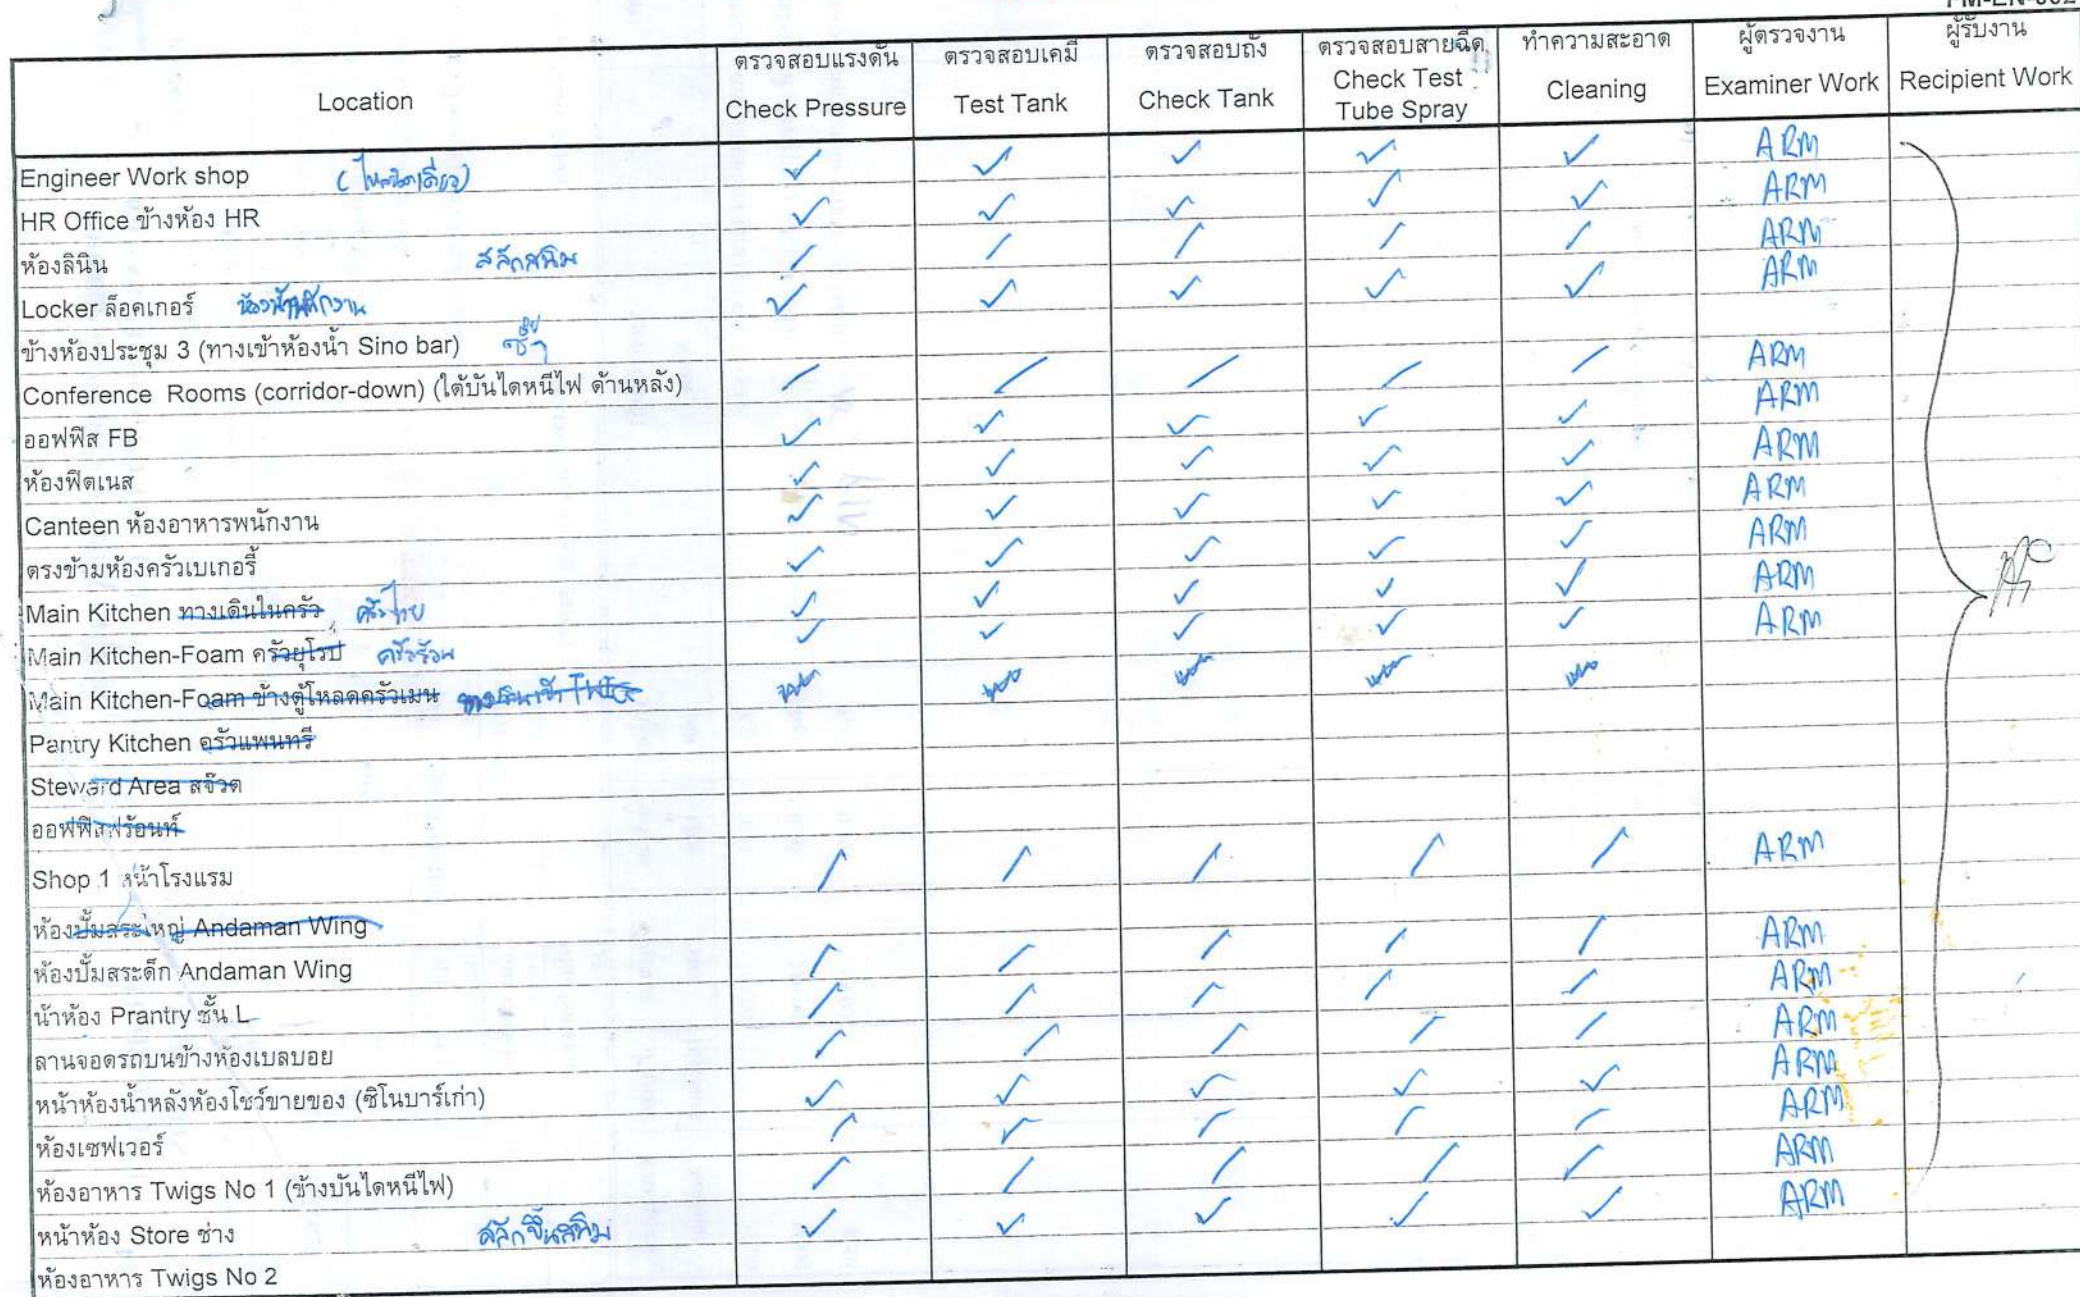 ตรวจสอบแรงดัน ตรวจสอบเคมี ตรวจสอบถัง ตรวจสอบสายฉีด ทำความสะอาด ผู้ตรวจงาน ผู้รับงาน
Location Check Pressure Test Tank Check Tank Check Test Tube Spray Cleaning Examiner Work Recipient Work
Engineer Work shop ✓ ✓ ✓ ✓ ✓ ARM
HR Office ข้างห้อง HR ✓ ✓ ✓ ✓ ✓ ARM
ห้องลินิน สลักสนิม / / / / / ARM
Locker ล็อคเกอร์ ห้องน้ำพนักงาน ✓ ✓ ✓ ✓ ✓ ARM
ข้างห้องประชุม 3 (ทางเข้าห้องน้ำ Sino bar)
Conference Rooms (corridor-down) (ใต้บันไดหนีไฟ ด้านหลัง) / / / / / ARM
ออฟฟิส FB ✓ ✓ ✓ ✓ ✓ ARM
ห้องฟิตเนส ✓ ✓ ✓ ✓ ✓ ARM
Canteen ห้องอาหารพนักงาน ✓ ✓ ✓ ✓ ✓ ARM
ตรงข้ามห้องครัวเบเกอรี่ ✓ ✓ ✓ ✓ ✓ ARM
Main Kitchen ทางเดินในครัว ครัวไทย ✓ ✓ ✓ ✓ ✓ ARM
Main Kitchen-Foam ครัวยุโรป ครัวร้อน ✓ ✓ ✓ ✓ ✓ ARM
Main Kitchen-Foam ข้างตู้โหลดครัวเมน
Pantry Kitchen ครัวแพนทรี
Steward Area สจ๊วต
ออฟฟิสฟร้อนท์
Shop 1 หน้าโรงแรม / / / / / ARM
ห้องปั้มสระใหญ่ Andaman Wing
ห้องปั้มสระเด็ก Andaman Wing / / / / / ARM
น้าห้อง Prantry ชั้น L / / / / / ARM
ลานจอดรถบนข้างห้องเบลบอย / / / / / ARM
หน้าห้องน้ำหลังห้องโชว์ขายของ (ซิโนบาร์เก่า) ✓ ✓ ✓ ✓ ✓ ARM
ห้องเซฟเวอร์ / ✓ / / / ARM
ห้องอาหาร Twigs No 1 (ข้างบันไดหนีไฟ) / / / / / ARM
หน้าห้อง Store ช่าง สลักขึ้นสนิม ✓ ✓ ✓ ✓ ✓ ARM
ห้องอาหาร Twigs No 2